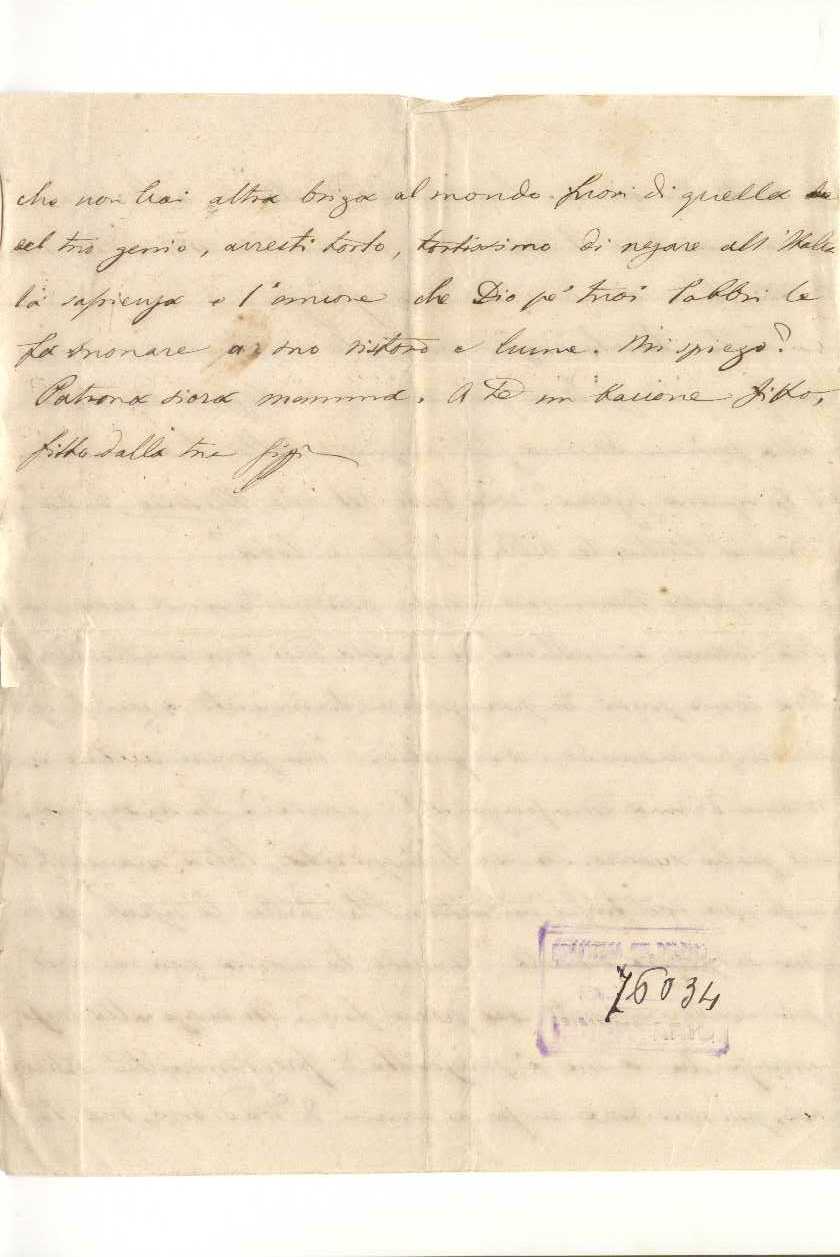 che non hai altra briga al mondo fuori di quella
del tuo genio, avresti torto, tortissimo di negare all' Italia
la sapienza e l'amore che Dio pe' tuoi labbri le
fa suonare a suo ristoro e lume. Mi spiego?
Patrona siora mamma. A Te un bacione fitto,
fitto dalla tua Gigì
76034